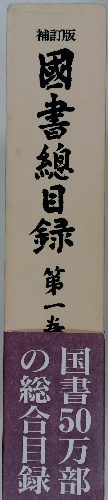 補訂版
國書總目録
第一巻
国書50万部
の総合目録